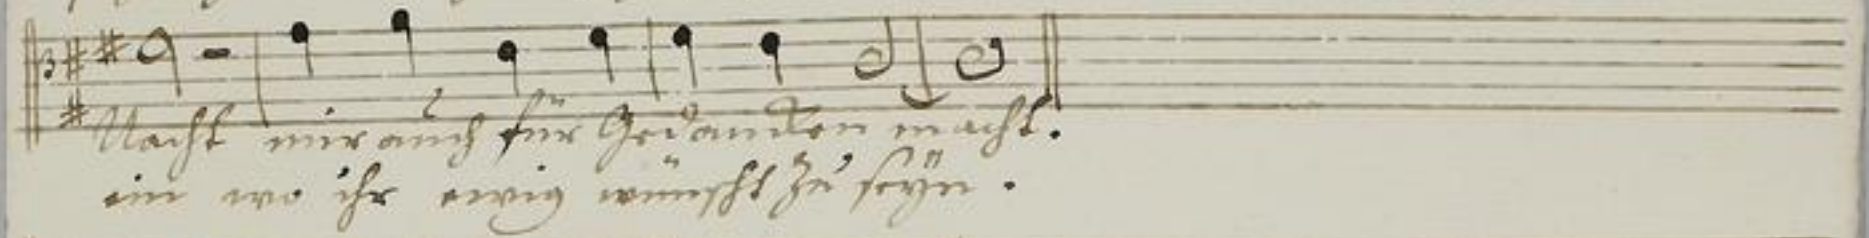 Nacht mir auch für Gedancken macht.
ein wo ihr ewig wünscht zu seÿn.